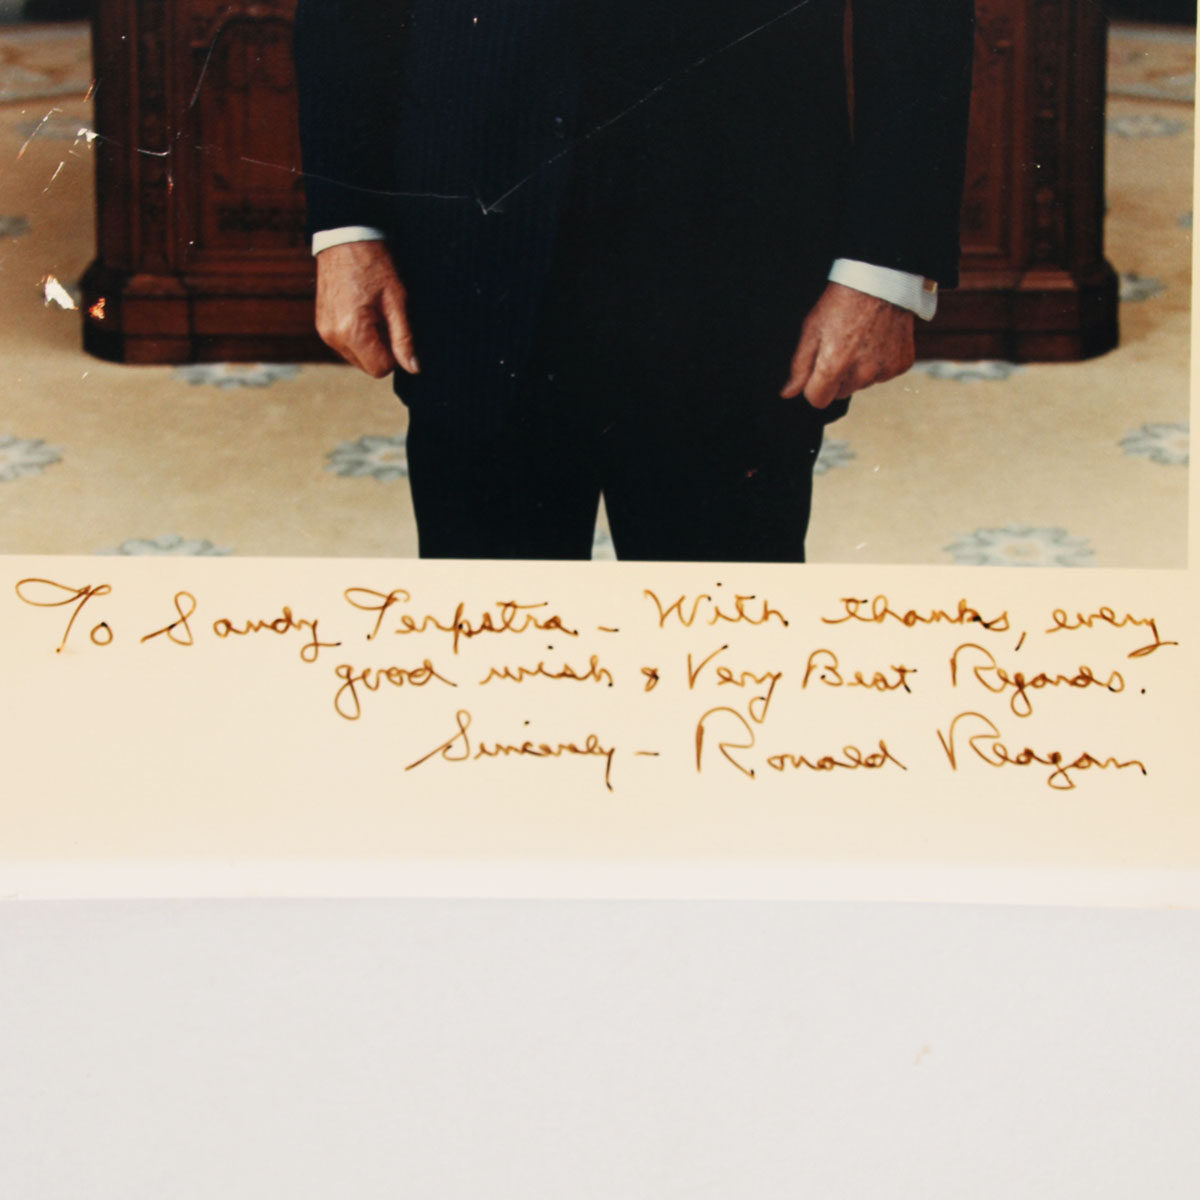 To Sandy Terpstra - With thanks, every
good wish & Very Best Regards.
Sincerely - Ronald Reagan